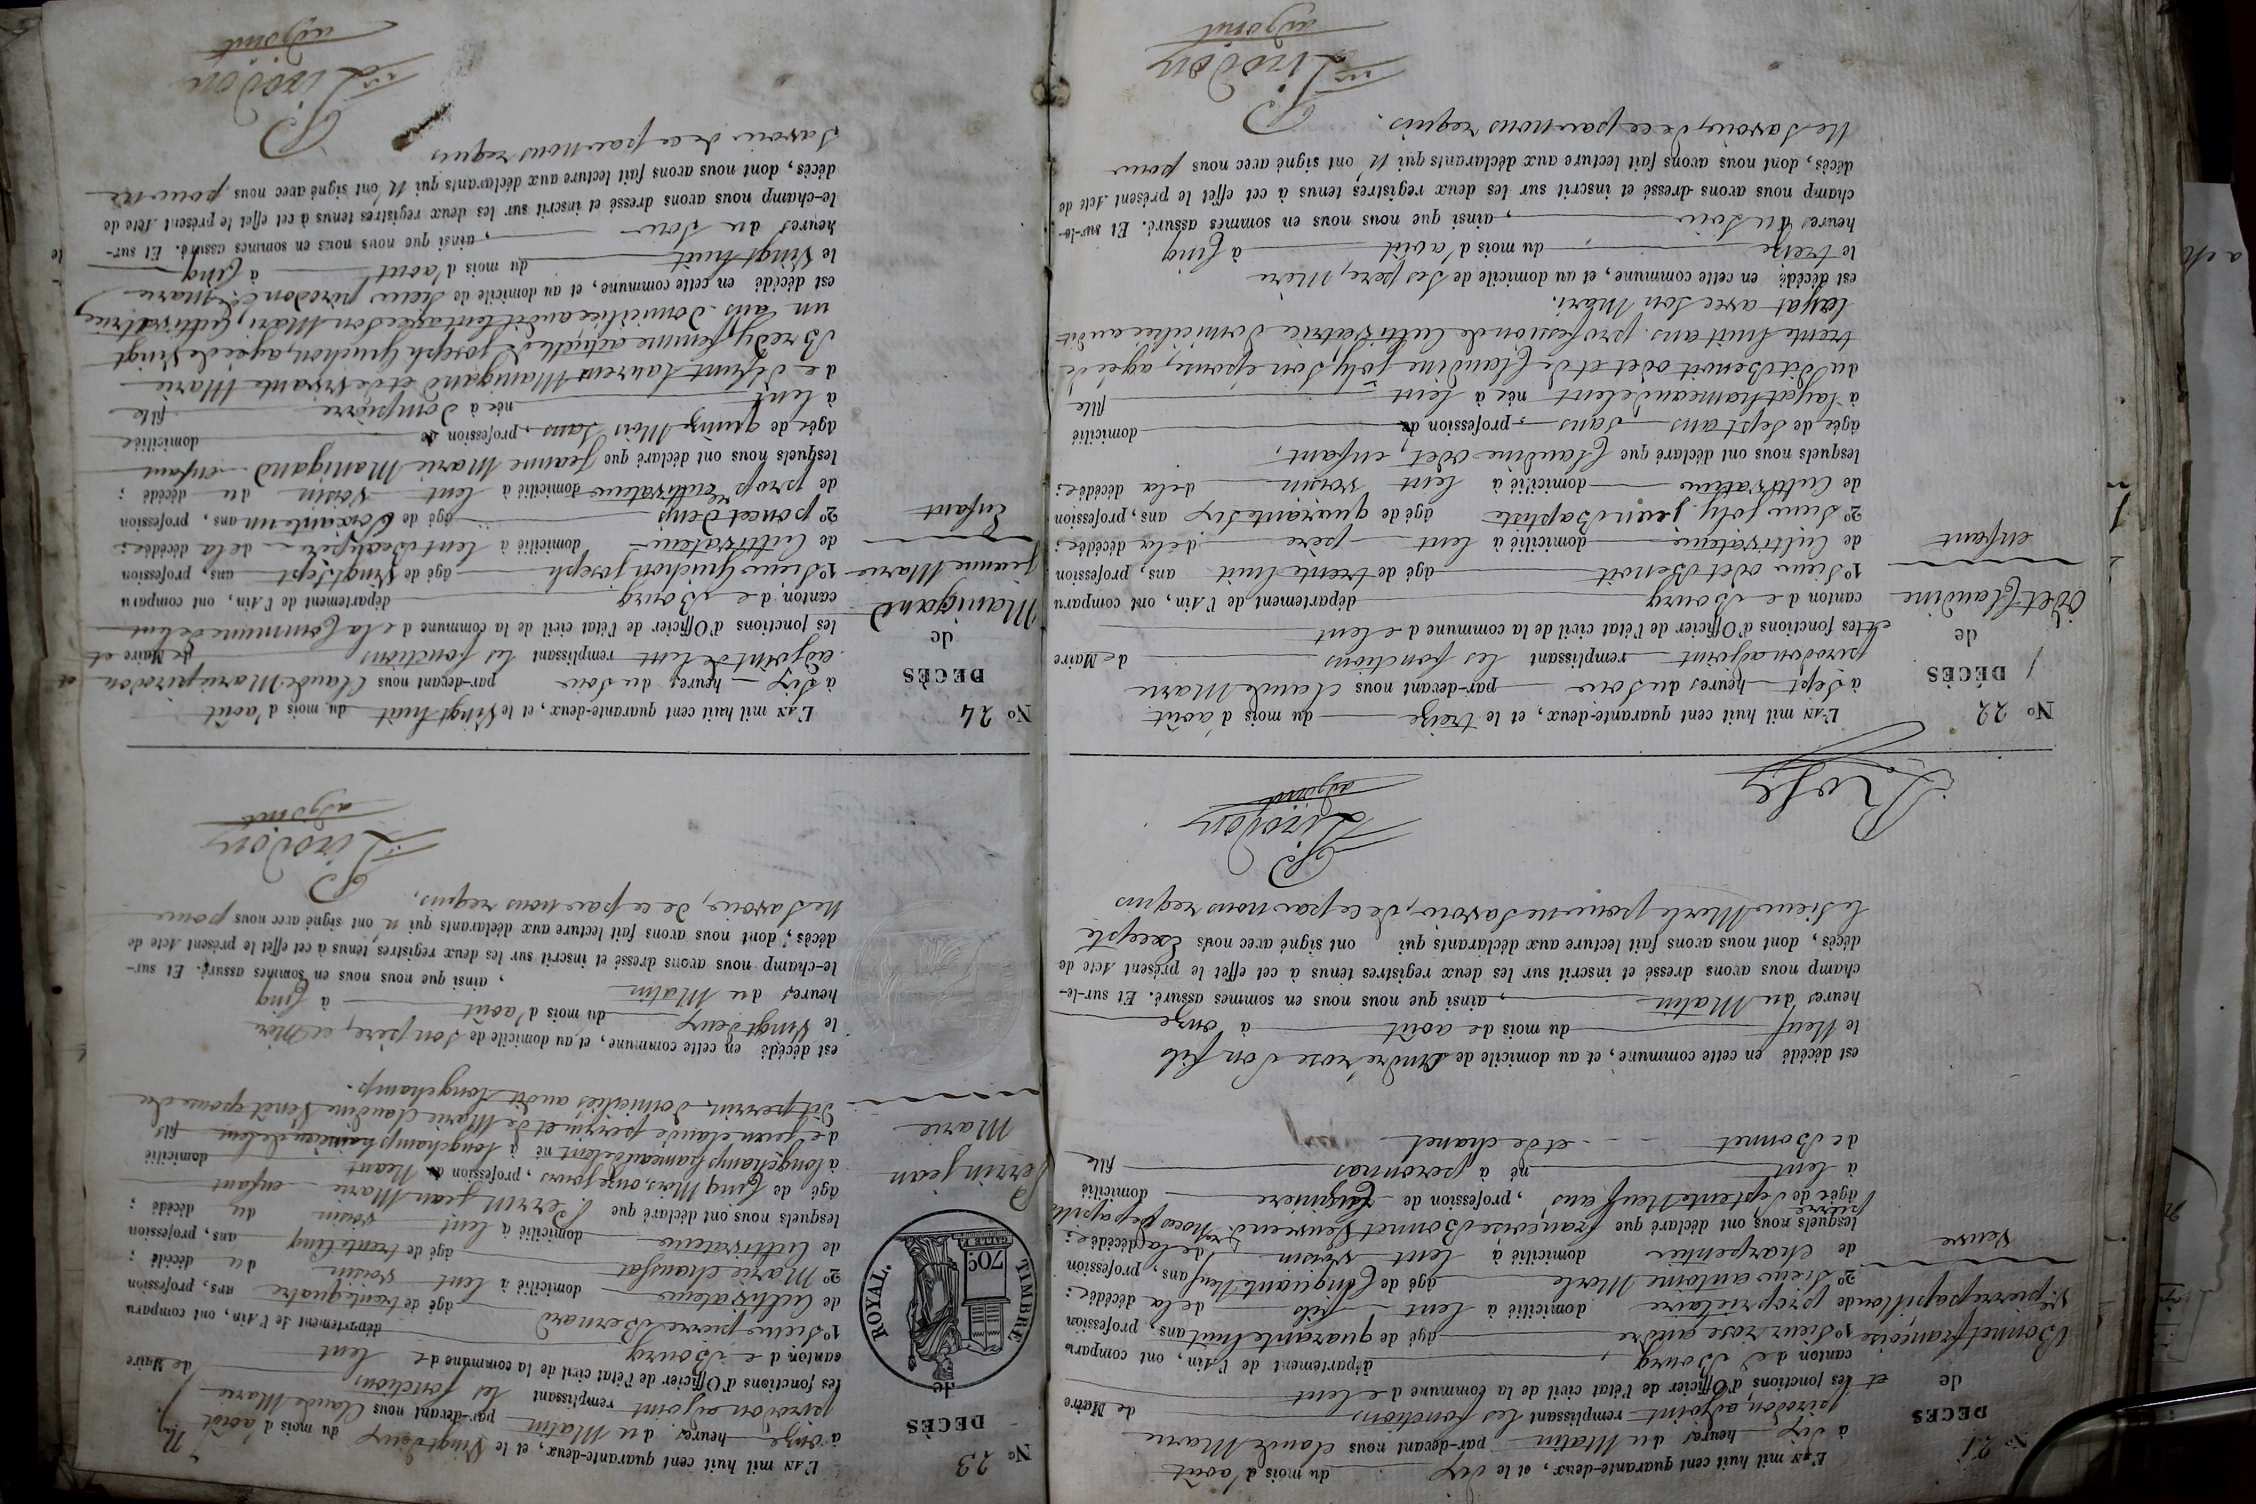 N° 21
DÉCÈS
de
Bonnet françoise
Ve pierre papillon
veuve
L'AN mil huit cent quarante-deux, et le dix du mois d'août
à dix heures du Matin par-devant nous Claude Marie
pirodon, adjoint remplissant les fonctions de Maire
et les fonctions d'Officier de l'état civil de la commune de lent
canton de Bourg, département de l'Ain, ont comparu
1° Sieur rose andré proprietaire âgé de quarante huit ans, profession
domicilié à lent fils de la décédée;
2° Sieur antoine Merle âgé de Cinquante Neuf ans, profession
de charpentier domicilié à lent voisin de la décédée;
lesquels nous ont déclaré que françoise Bonnet Veuve en
âgée de Septante Neuf ans, profession de domicilié
à lent né à peronnas fille
de Bonnet et de chanel
est décédé en cette commune, et au domicile de André rose Son fils
le Neuf du mois de août à onze
heures du Matin, ainsi que nous nous en sommes assuré. Et sur-le-
champ nous avons dressé et inscrit sur les deux registres tenus à cet effet le présent Acte de
décès, dont nous avons fait lecture aux déclarants qui ont signé avec nous Excepté
le Sieur Merle pour ne Savoir, de ce par nous requis
Pirodon
adjoint
Rose
N° 22
DÉCÈS
de
Odet Claudine
enfant
L'AN mil huit cent quarante-deux, et le treize du mois d'août
à Sept heures du Soir par-devant nous Claude Marie
pirodon adjoint remplissant les fonctions de Maire
et les fonctions d'Officier de l'état civil de la commune de lent
canton de Bourg département de l'Ain, ont comparu
1° Sieur odet Benoit âgé de trente huit ans, profession
de Cultivateur domicilié à lent père de la décédée;
2° Sieur joly jean Baptiste âgé de quarante Six ans, profession
de Cultivateur domicilié à lent voisin de la décédée;
lesquels nous ont déclaré que Claudine odet, enfant,
âgée de Sept ans Sans, profession de domicilié
à layat hameau de lent née à lent fille
du dit Benoit odet et de Claudine joly Son épouse, agée de
trente huit ans, profession de Cultivatrice domiciliée audit
layat avec Son Mari.
est décédé en cette commune, et au domicile de Ses père, Mère
le treize du mois d'août à Cinq
heures du Soir, ainsi que nous nous en sommes assuré. Et sur-le-
champ nous avons dressé et inscrit sur les deux registres tenus à cet effet le présent Acte de
décès, dont nous avons fait lecture aux déclarants qui N' ont signé avec nous pour
Ne Savoir, de ce par nous requis.
Pirodon
adjoint
N° 23
DÉCÈS
de
TIMBRE ROYAL.
70c
Perrin jean
Marie
L'AN mil huit cent quarante-deux, et le Vingt deux du mois d'août
à onze heures du Matin par-devant nous Claude Marie
pirodon adjoint remplissant les fonctions de Maire
les fonctions d'Officier de l'état civil de la commune de lent
canton de Bourg département de l'Ain, ont comparu
1° Sieur pierre Bernard âgé de trente quatre ans, profession
de Cultivateur domicilié à lent voisin du décédé;
2° Marie chanssat âgé de trente Cinq ans, profession
de Cultivateur domicilié à lent voisin du décédé;
lesquels nous ont déclaré que Perrin jean Marie enfant
âgé de Cinq Mois, onze jours, profession de Neant domicilié
à longchamp hameau de lent né à longchamp hameau de lent fils
de jean claude perrin et de Marie Claudine Venet épouse du
dit perrin, domiciliés audit longchamp.
est décédé en cette commune, et au domicile de Son père, et Mère
le Vingt deux du mois d'août à Cinq
heures du Matin, ainsi que nous nous en sommes assuré. Et sur-
le-champ nous avons dressé et inscrit sur les deux registres tenus à cet effet le présent Acte de
décès, dont nous avons fait lecture aux déclarants qui n' ont signé avec nous pour
Ne Savoir, de ce par nous requis.
Pirodon
adjoint
N° 24
DÉCÈS
de
Manigand
jeanne Marie
Enfant
L'AN mil huit cent quarante-deux, et le Vingt huit du mois d'août
à Six heures du Soir par-devant nous Claude Marie pirodon
adjoint de lent remplissant les fonctions de Maire et
les fonctions d'Officier de l'état civil de la commune de lent
canton de Bourg département de l'Ain, ont comparu
1° Sieur Guichon joseph âgé de Vingt Sept ans, profession
de Cultivateur domicilié à lent Beau père de la décédée;
2° poncet Denis âgé de Soixante un ans, profession
de prop cultivateur domicilié à lent voisin du décédé;
lesquels nous ont déclaré que Jeanne Marie Manigand enfant
âgée de quinze Mois Sans, profession de domiciliée
à lent née à Dompierre fille
de défunt Laurent Manigand et de vivante Marie
Bredy femme actuelle de joseph Guichon, agée de Vingt
un ans. domiciliée audit lent avec Son Mari, Cultivatrice
est décédé en cette commune, et au domicile de Sieur pirodon Cl. Marie
le Vingt huit du mois d'août à Cinq
heures du Soir, ainsi que nous nous en sommes assuré. Et sur-
le-champ nous avons dressé et inscrit sur les deux registres tenus à cet effet le présent Acte de
décès, dont nous avons fait lecture aux déclarants qui N' ont signé avec nous pour ne
Savoir de ce par nous requis
Pirodon
adjoint